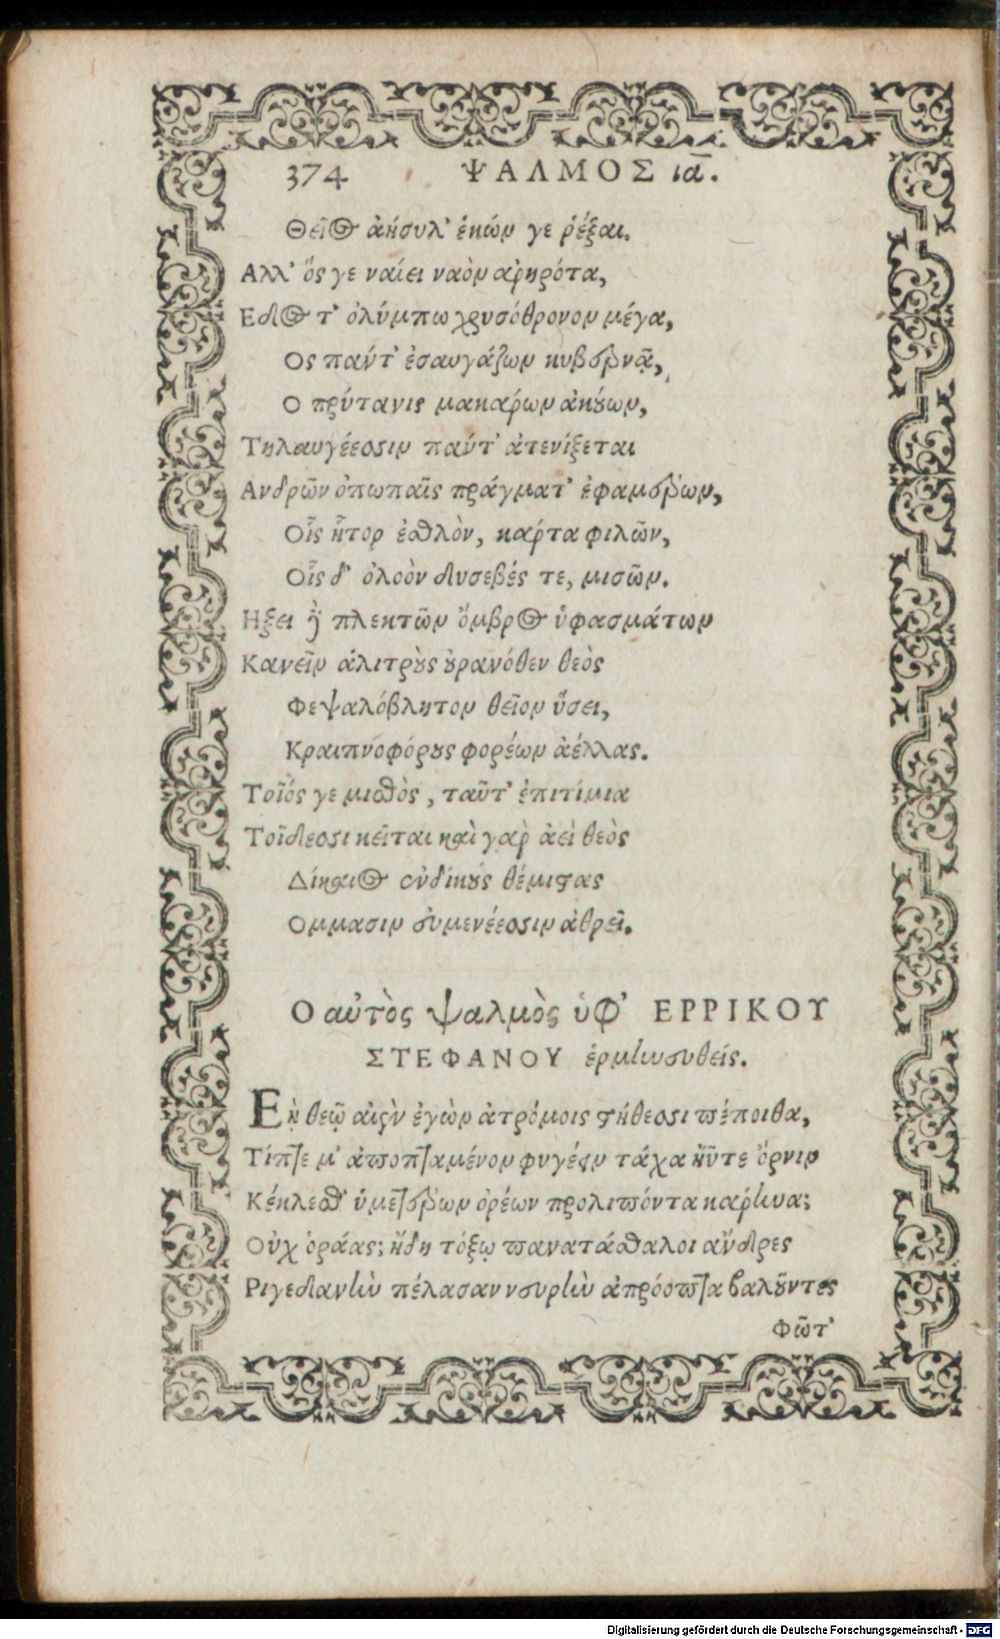 374 ΨΑΛΜΟΣ ια.
Θεῖος ἀήσυλ' ἑκών γε ῥέξαι.
Αλλ' ὅς γε ναίει ναὸν ἀρηρότα,
Εδος τ' ὀλύμπω χρυσόθρονον μέγα,
Ος πάντ' ἐσαυγάζων κυβερνᾷ,
Ο πρύτανις μακάρων ἀκούων,
Τηλαυγέεσσιν πάντ' ἀτενίξεται
Ανδρῶν ὀπωπαῖς πράγματ' ἐφαμερίων,
Οἷς ἦτορ ἐσθλὸν, κάρτα φιλῶν,
Οἷς δ' ὀλοὸν δυσεβές τε, μισῶν.
Ηξει δὲ πλεκτῶν ὄμβρος ὑφασμάτων
Κανεῖν ἀλιτροὺς οὐρανόθεν θεὸς
Φεψαλόβλητον θεῖον ὕσει,
Κραιπνοφόρους φορέων ἀέλλας.
Τοῖός γε μισθὸς, ταῦτ' ἐπιτίμια
Τοῖδεσσι κεῖται καὶ γὰρ ἀεὶ θεὸς
Δίκαιος ἐνδίκους θέμιστας
Ομμασιν εὐμενέεσσιν ἀθρεῖ.
Ο αὐτὸς ψαλμὸς ὑφ' ΕΡΡΙΚΟΥ
ΣΤΕΦΑΝΟΥ ἑρμηνευθείς.
Εν θεῷ αἰὲν ἐγὼν ἀτρόμοις στήθεσσι πέποιθα,
Τίπτε μ' ἀποπταμένον φυγέειν τάχα ἠΰτε ὄρνιν
Κέκλεσθ' ὑμετέρων ὀρέων προλιπόντα κάρηνα;
Οὐχ ὁράας; ἤδη τόξῳ παναταάσθαλοι ἄνδρες
Ριγεδανὴν πέλασαν νευρὴν ἀπρόοπτα βαλοῦντες
Φῶτ'
Digitalisierung gefördert durch die Deutsche Forschungsgemeinschaft - DFG